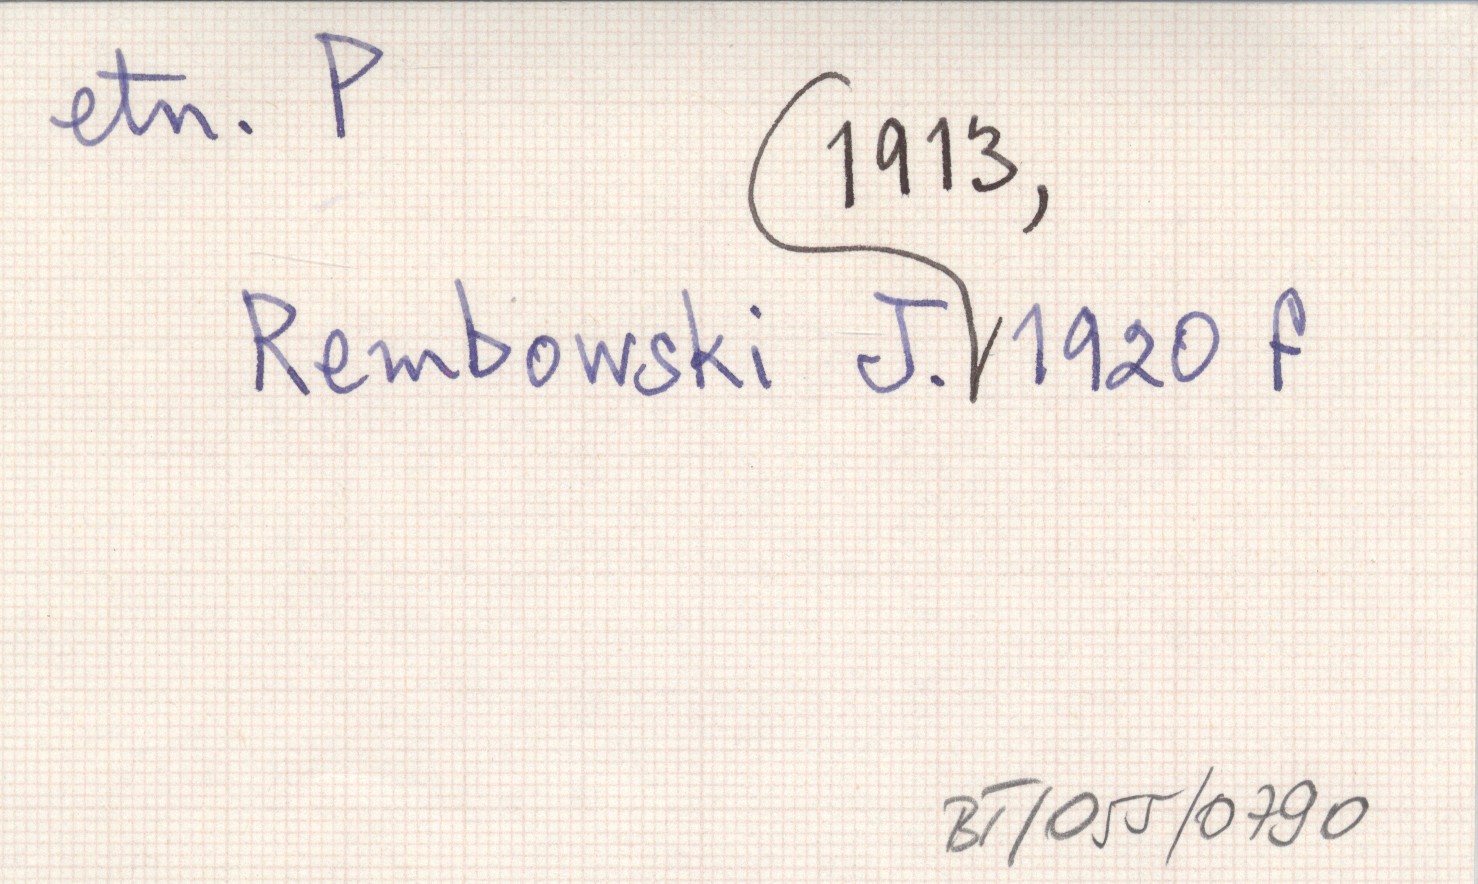 etn. P
1913,
Rembowski J. 1920 f
BT/055/0790